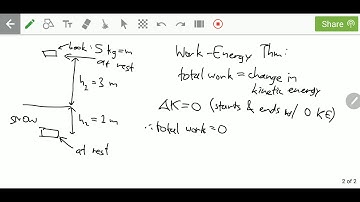 Share
book: 5 kg = m
at rest
h₂ = 3 m
snow
h₂ = 1 m
at rest
Work-Energy Thm:
total work = change in
kinetic energy
ΔK = 0 (starts & ends w/ 0 KE)
∴ total work = 0
2 of 2